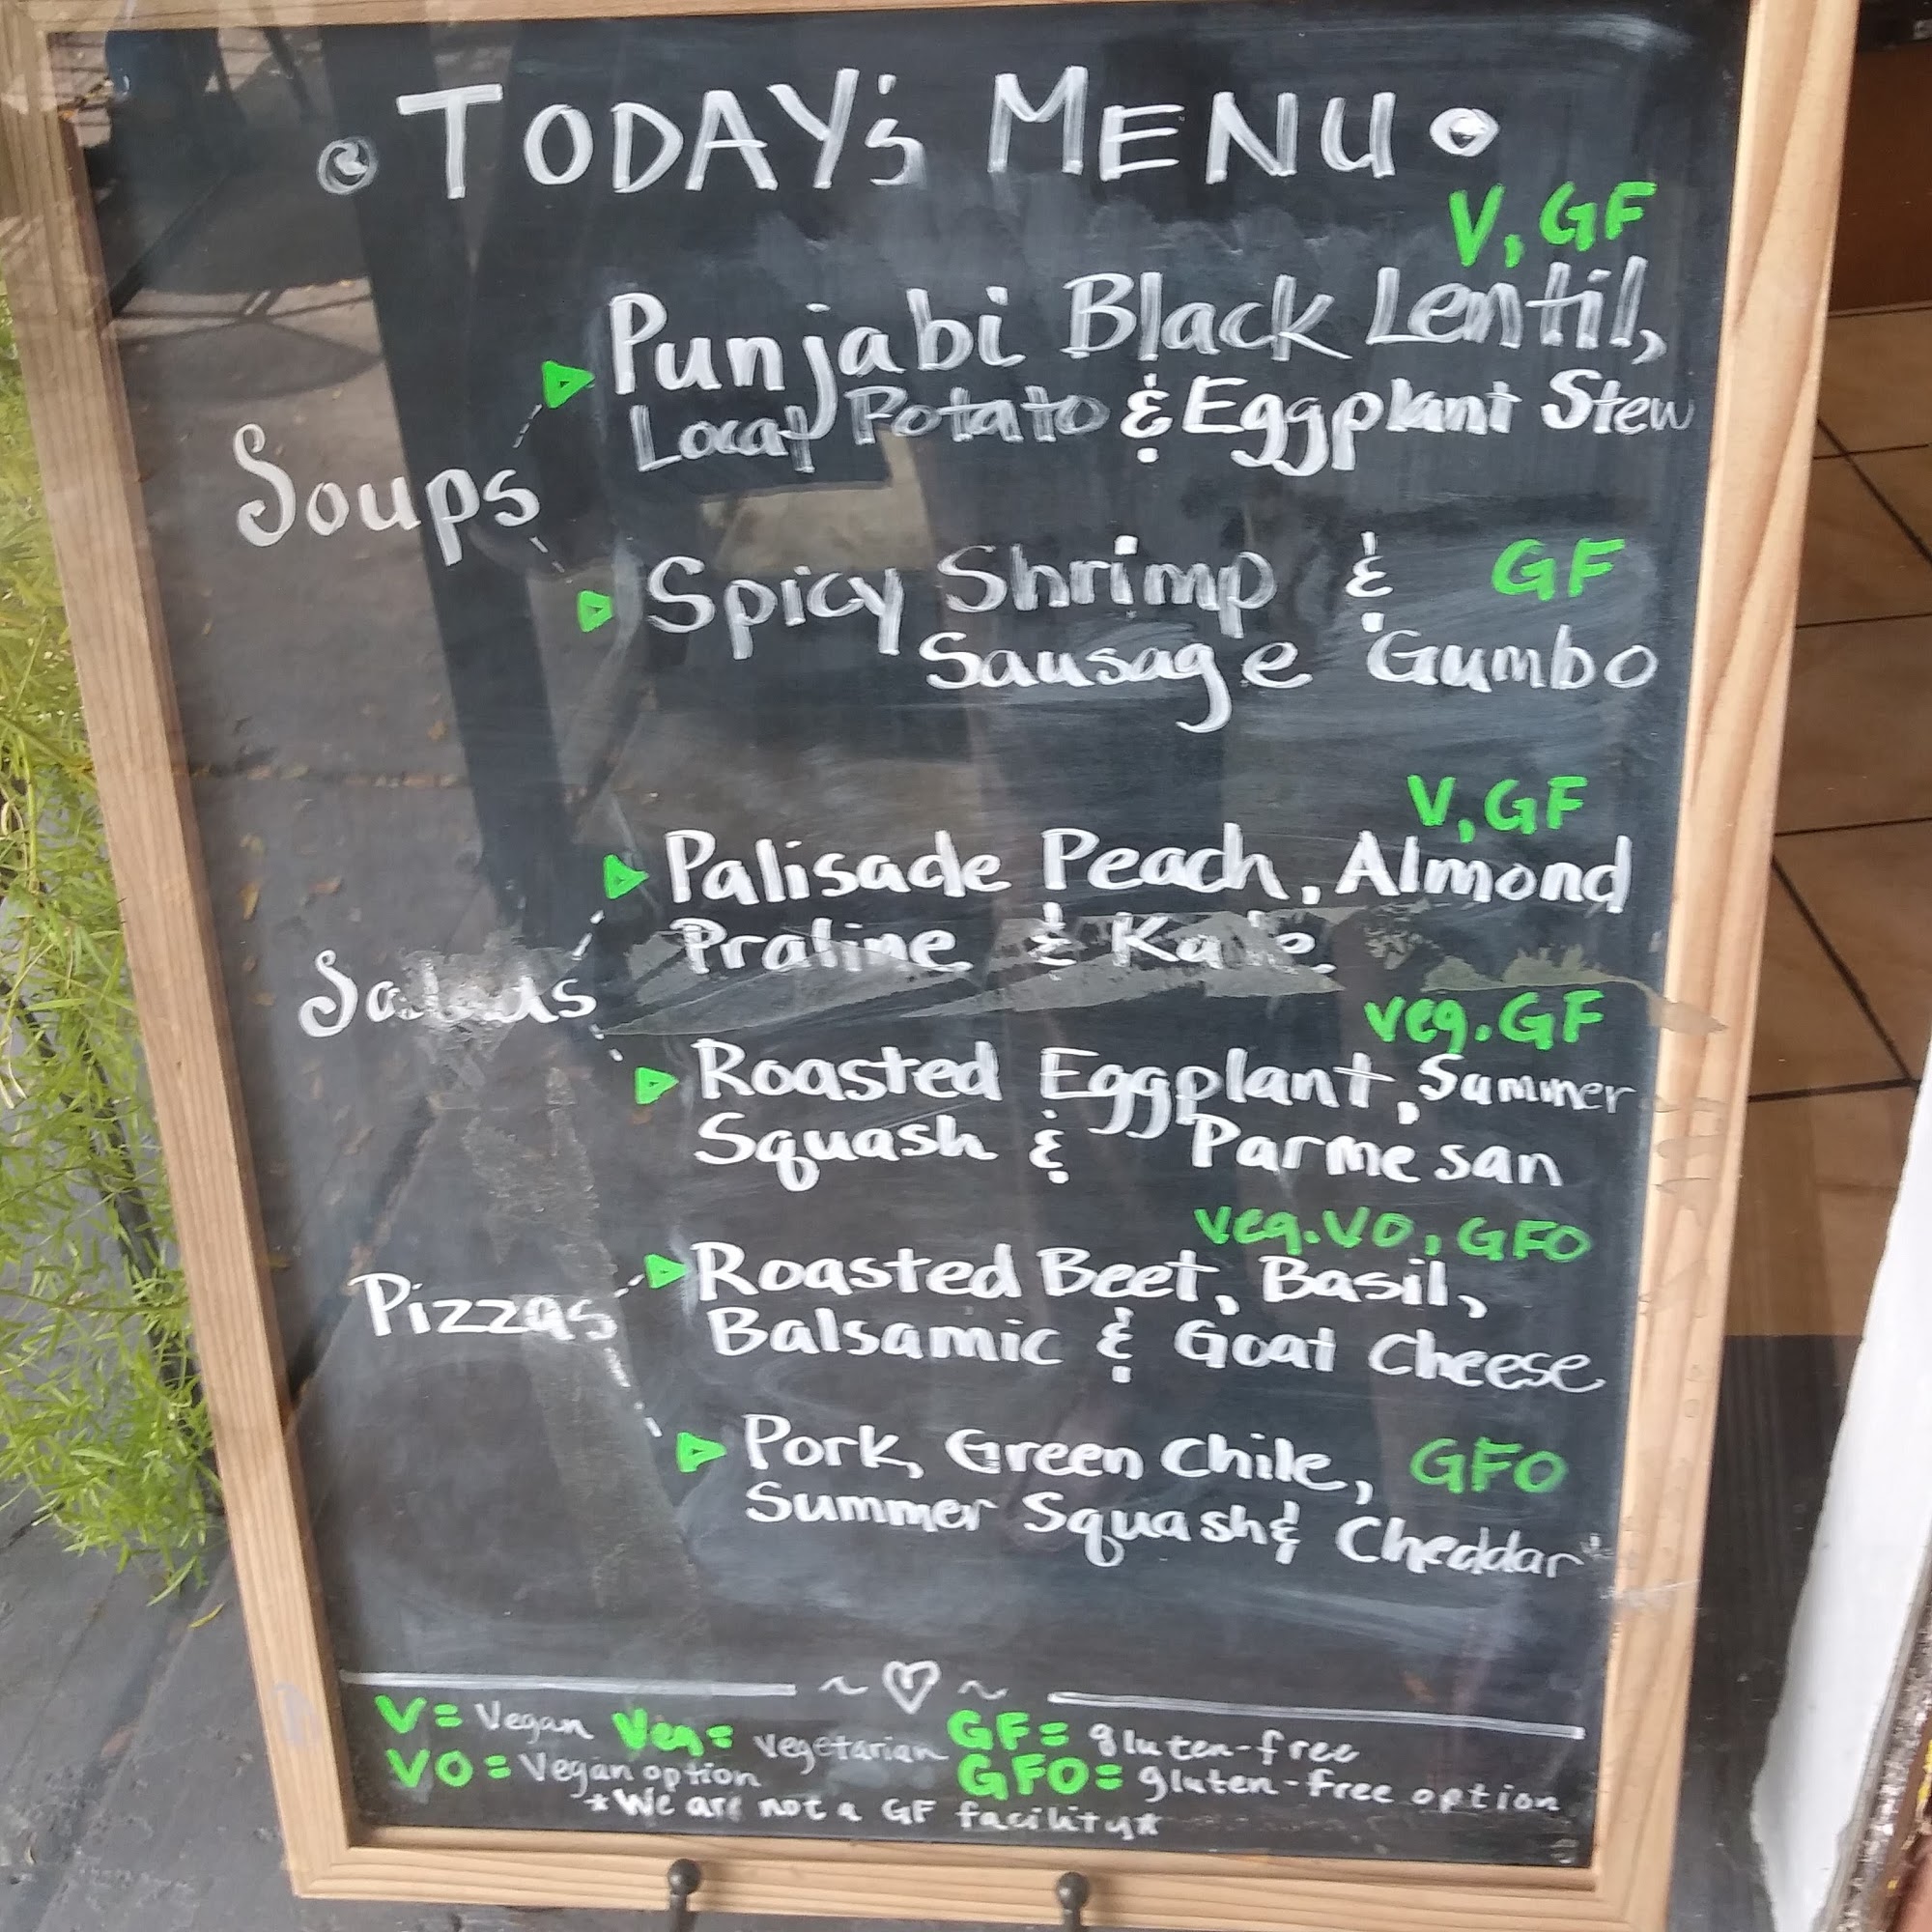 TODAY's MENU
V, GF
Punjabi Black Lentil,
Local Potato & Eggplant Stew
Soups
Spicy Shrimp & GF
Sausage Gumbo
V, GF
Palisade Peach, Almond
Praline & Kale
Salads
veg. GF
Roasted Eggplant, Summer
Squash & Parmesan
veg. VO, GFO
Roasted Beet, Basil,
Pizzas
Balsamic & Goat Cheese
Pork, Green Chile, GFO
Summer Squash & Cheddar
V = Vegan Veg = vegetarian GF = gluten-free
VO = Vegan option GFO = gluten-free option
*We are not a GF facility*